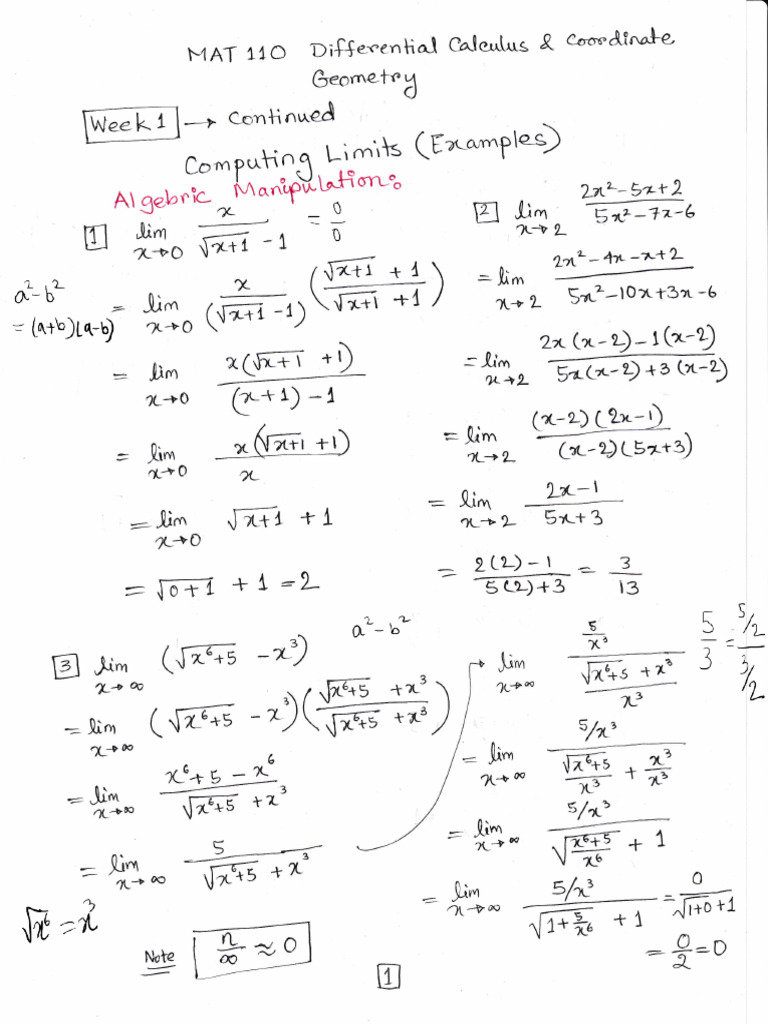 MAT 110 Differential Calculus & Coordinate
Geometry
Week 1 → Continued
Computing Limits (Examples)
Algebric Manipulation:
1 lim x→0 x/(√(x+1) - 1) = 0/0
a²-b²
= (a+b)(a-b)
= lim x→0 x/(√(x+1) - 1) ((√(x+1) + 1)/(√(x+1) + 1))
= lim x→0 x(√(x+1) + 1)/((x+1) - 1)
= lim x→0 x(√(x+1) + 1)/x
= lim x→0 √(x+1) + 1
= √(0+1) + 1 = 2
2 lim x→2 (2x²-5x+2)/(5x²-7x-6)
= lim x→2 (2x²-4x-x+2)/(5x²-10x+3x-6)
= lim x→2 (2x(x-2)-1(x-2))/(5x(x-2)+3(x-2))
= lim x→2 ((x-2)(2x-1))/((x-2)(5x+3))
= lim x→2 (2x-1)/(5x+3)
= (2(2)-1)/(5(2)+3) = 3/13
3 lim x→∞ (√(x⁶+5) - x³)
a²-b²
= lim x→∞ (√(x⁶+5) - x³)((√(x⁶+5) + x³)/(√(x⁶+5) + x³))
= lim x→∞ (x⁶+5-x⁶)/(√(x⁶+5) + x³)
= lim x→∞ 5/(√(x⁶+5) + x³)
√x⁶ = x³
Note n/∞ ≈ 0
→ lim x→∞ (5/x³)/((√(x⁶+5) + x³)/x³)
5/3 = (5/2)/(3/2)
= lim x→∞ (5/x³)/(√(x⁶+5)/x³ + x³/x³)
= lim x→∞ (5/x³)/(√((x⁶+5)/x⁶) + 1)
= lim x→∞ (5/x³)/(√(1+5/x⁶) + 1) = 0/(√(1+0)+1)
= 0/2 = 0
1